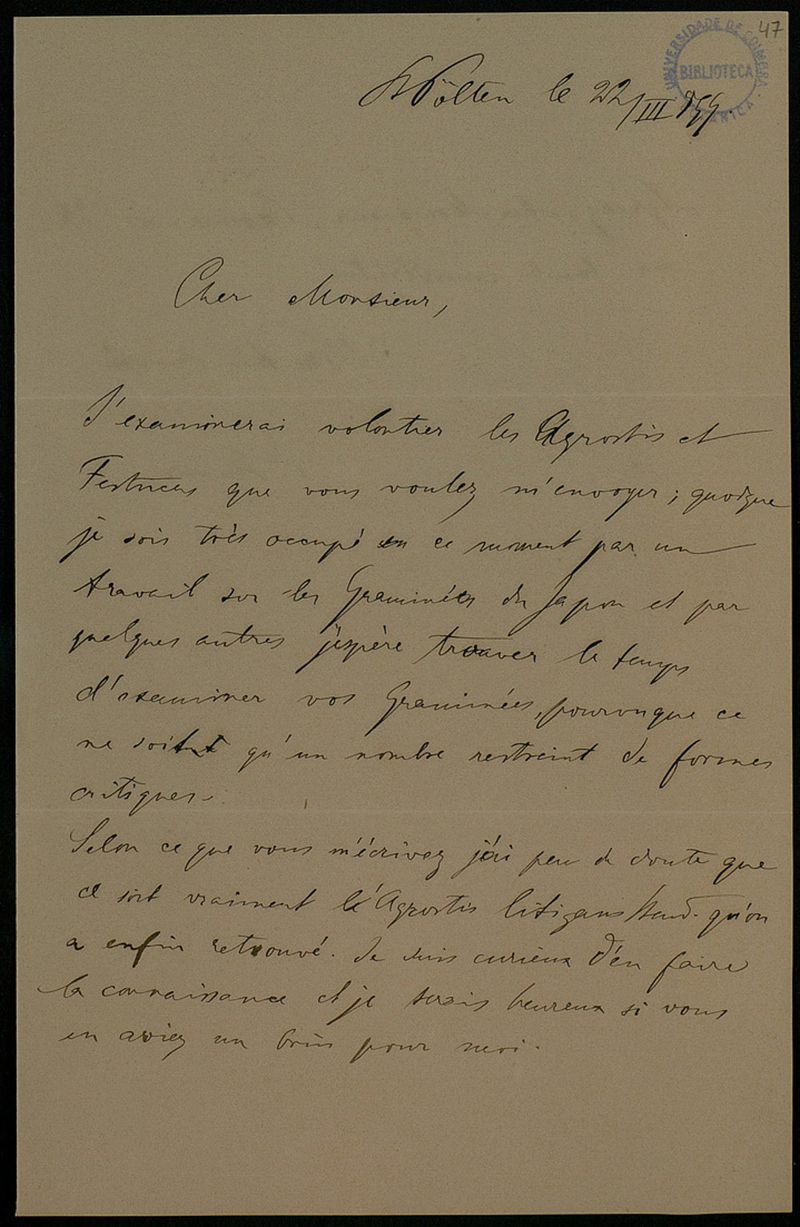 47
UNIVERSIDADE DE COIMBRA
BIBLIOTECA
BOTANICA
St Pölten le 22/III 899.
Cher Monsieur,
J'examinerai volontier les Agrostis et
Festucas que vous voulez m'envoyer; quoique
je sois très occupé en ce moment par un
travail sur les Graminées du Japon et par
quelques autres j'espère trouver le temps
d'examiner vos Graminées, pourvu que ce
ne soit qu'un nombre restreint de formes
critiques.
Selon ce que vous m'écrivez j'ai peu de doute que
ce soit vraiment l'Agrostis litigans Steud. qu'on
a enfin retrouvé. Je suis curieux d'en faire
la connaissance et je serais heureux si vous
en aviez un brin pour moi.